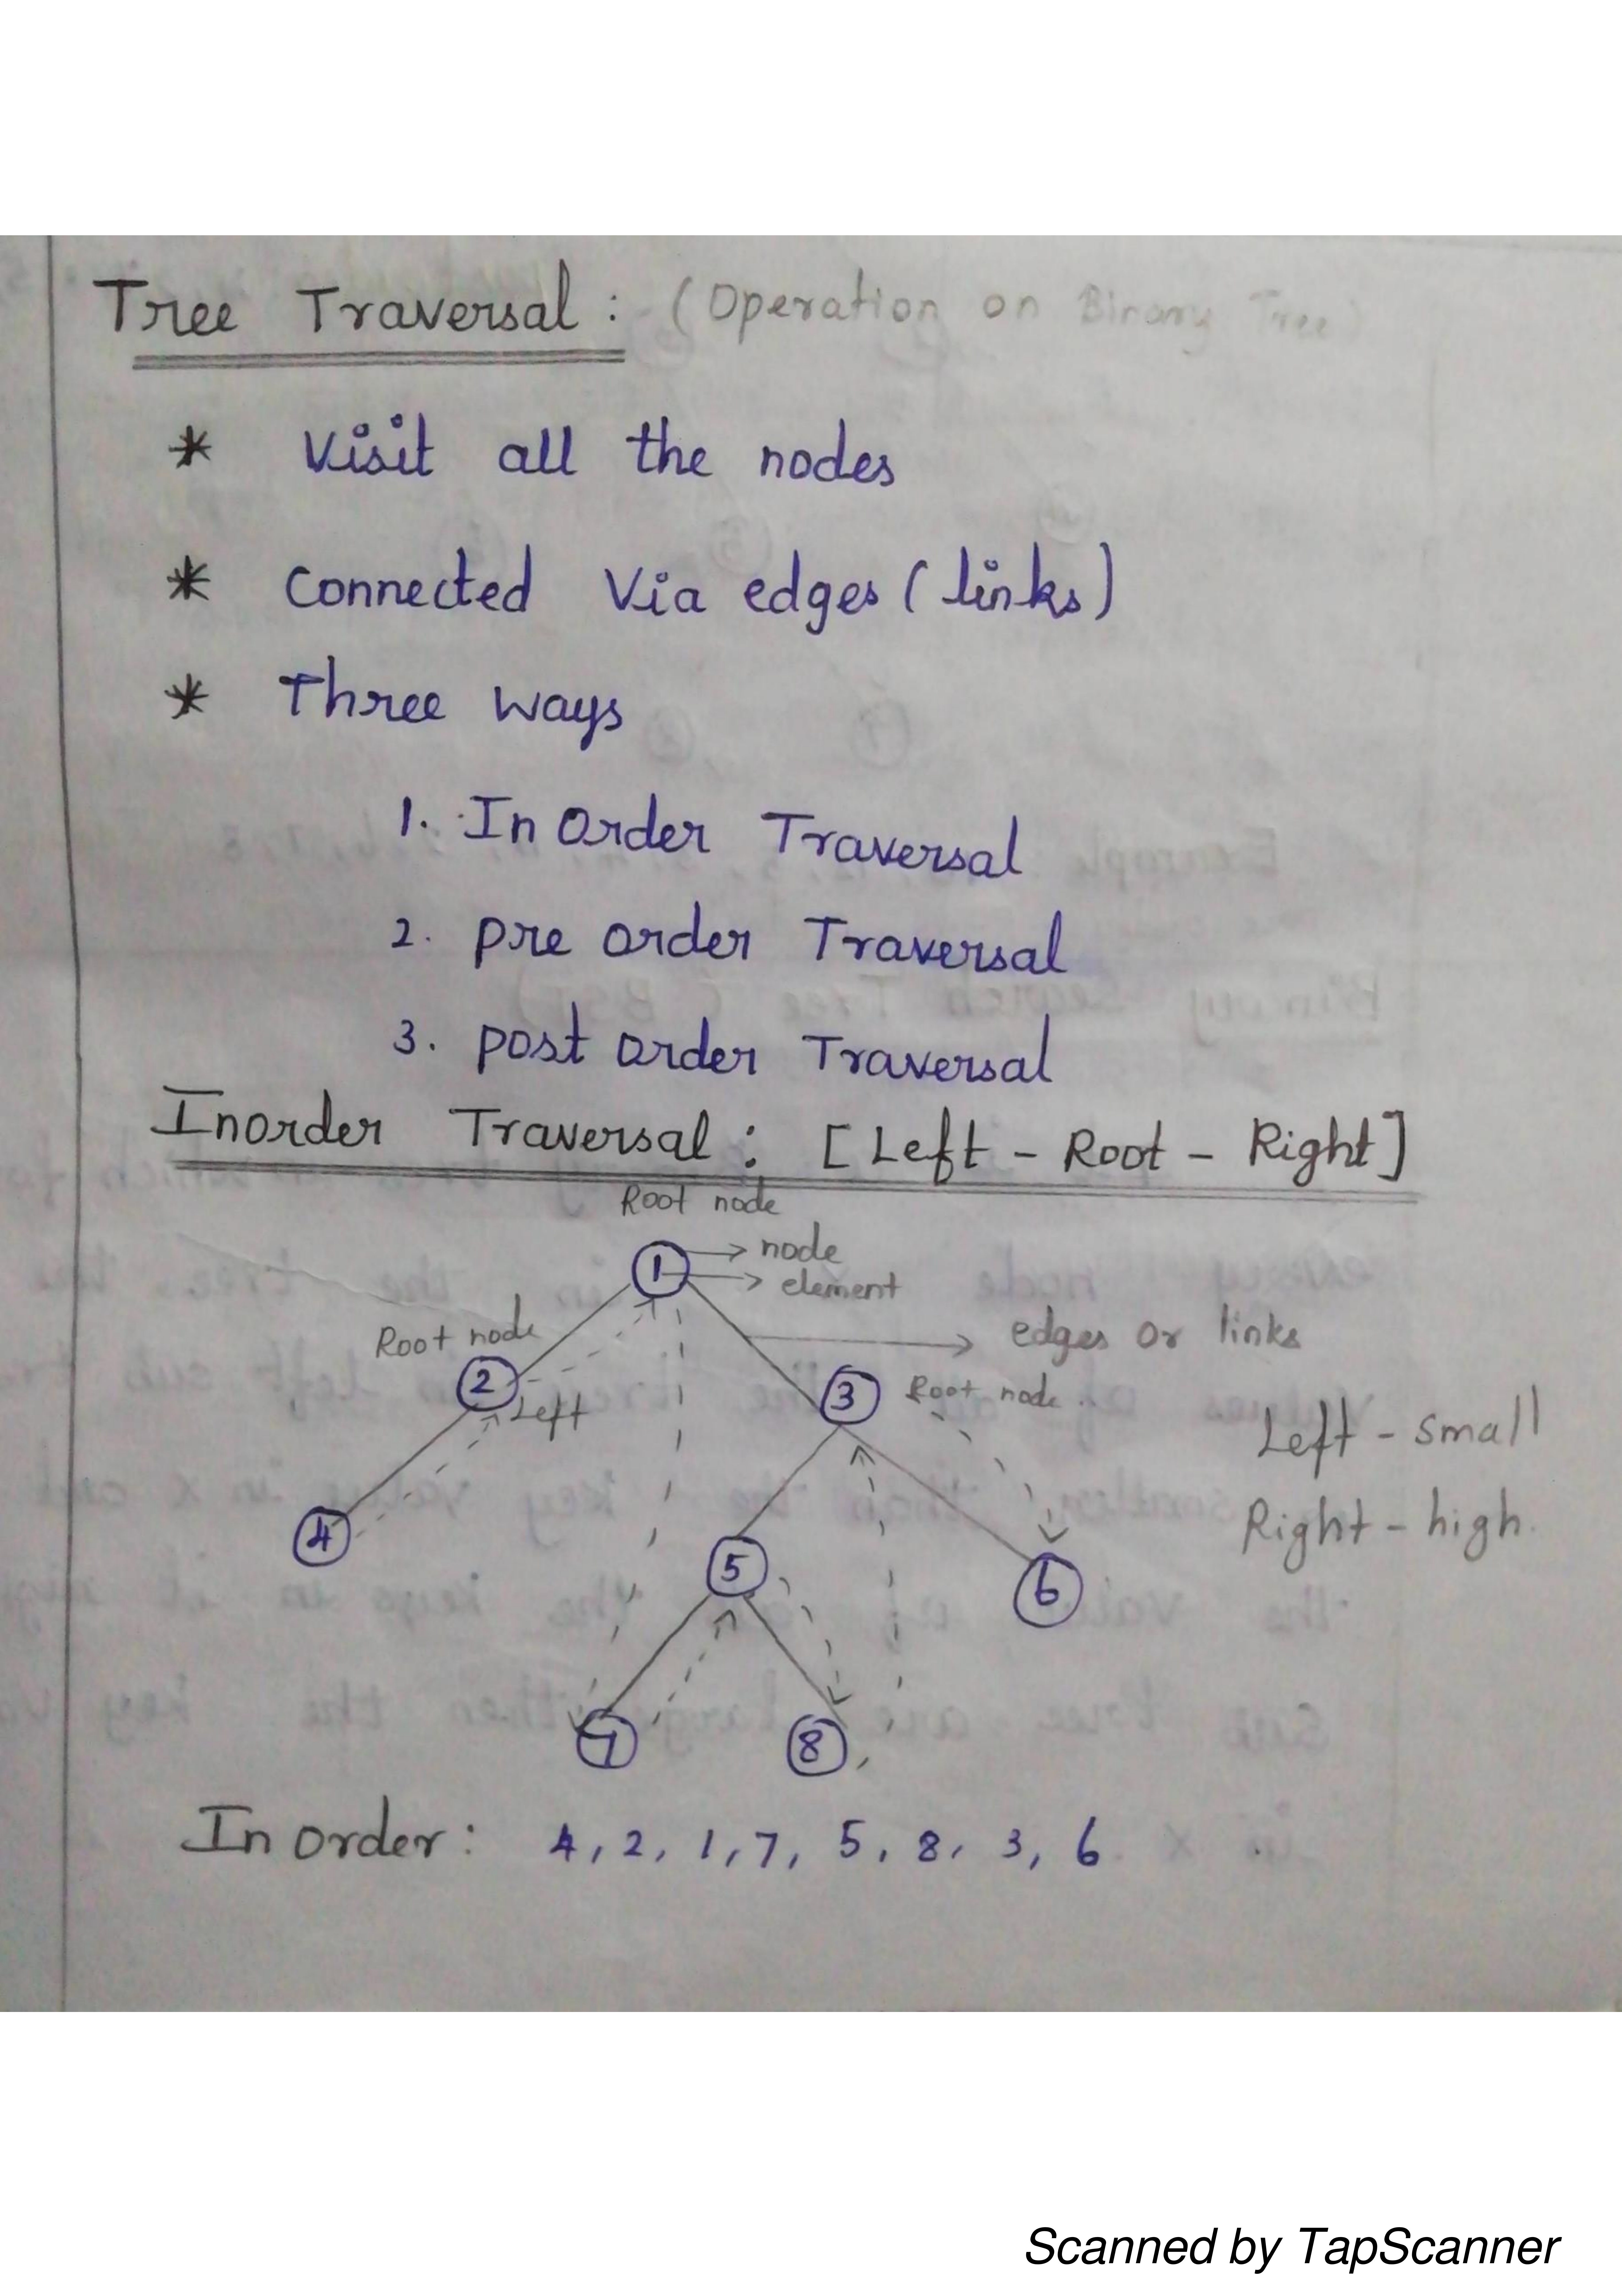 Tree Traversal : (Operation on Binary Tree)
* Visit all the nodes
* Connected Via edges (links)
* Three ways
1. In Order Traversal
2. pre order Traversal
3. post order Traversal
Inorder Traversal : [Left - Root - Right]
Root node
1 → node
→ element
Root node
edges or links
2
Left
3
Root node
Left - small
4
Right - high.
5
6
7
8
In order : 4, 2, 1, 7, 5, 8, 3, 6
Scanned by TapScanner